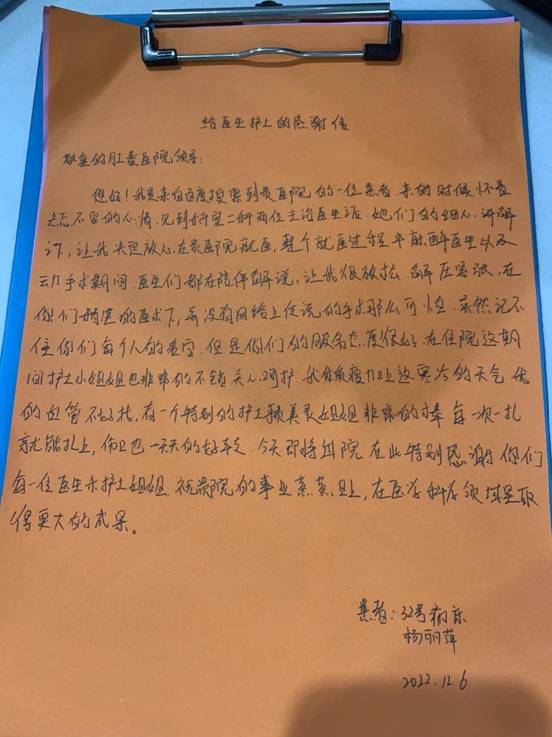 给医生护士的感谢信
敬重的肛泰医院领导:
您好!我是来自百度搜索到贵医院的一位患者.来的时候怀着
忐忑不安的心情,见到科室二科两位主治医生后.她们的细心.讲解
,让我决定放心在贵医院就医,整个就医过程中麻醉医生以及
手术期间.医生们都在陪伴解说,让我很放松.解压紧张,在
你们精湛的医术下,并没有网络上说的手术那么可怕.虽然记不
住你们每个人的名字.但是你们的服务态度很好.在住院这期
间护士小姐姐也非常的不错关心呵护.我体质疫力上这寒冷的天气
的血管不好扎,有一个特别的护士颖美 姐姐非常的棒每一次一扎
就能扎上,伤口也一天天的好转.今天即将出院在此特别感谢你们
每一位医生和护士姐姐 祝贵院的事业蒸蒸日上,在医学科学领域里取
得更大的成果。
患者:32号病床
杨丽萍
2022.12.6